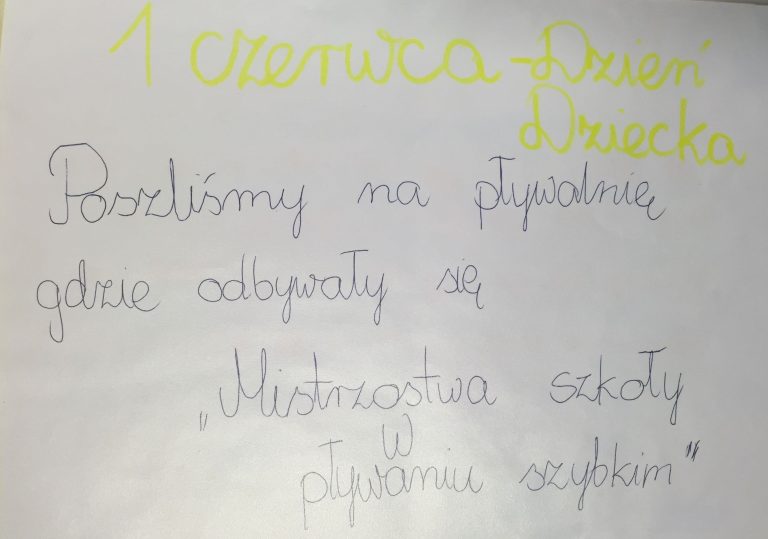 1 czerwca - Dzień
Dziecka
Poszliśmy na pływalnię
gdzie odbywały się
„Mistrzostwa szkoły
w
pływaniu szybkim"